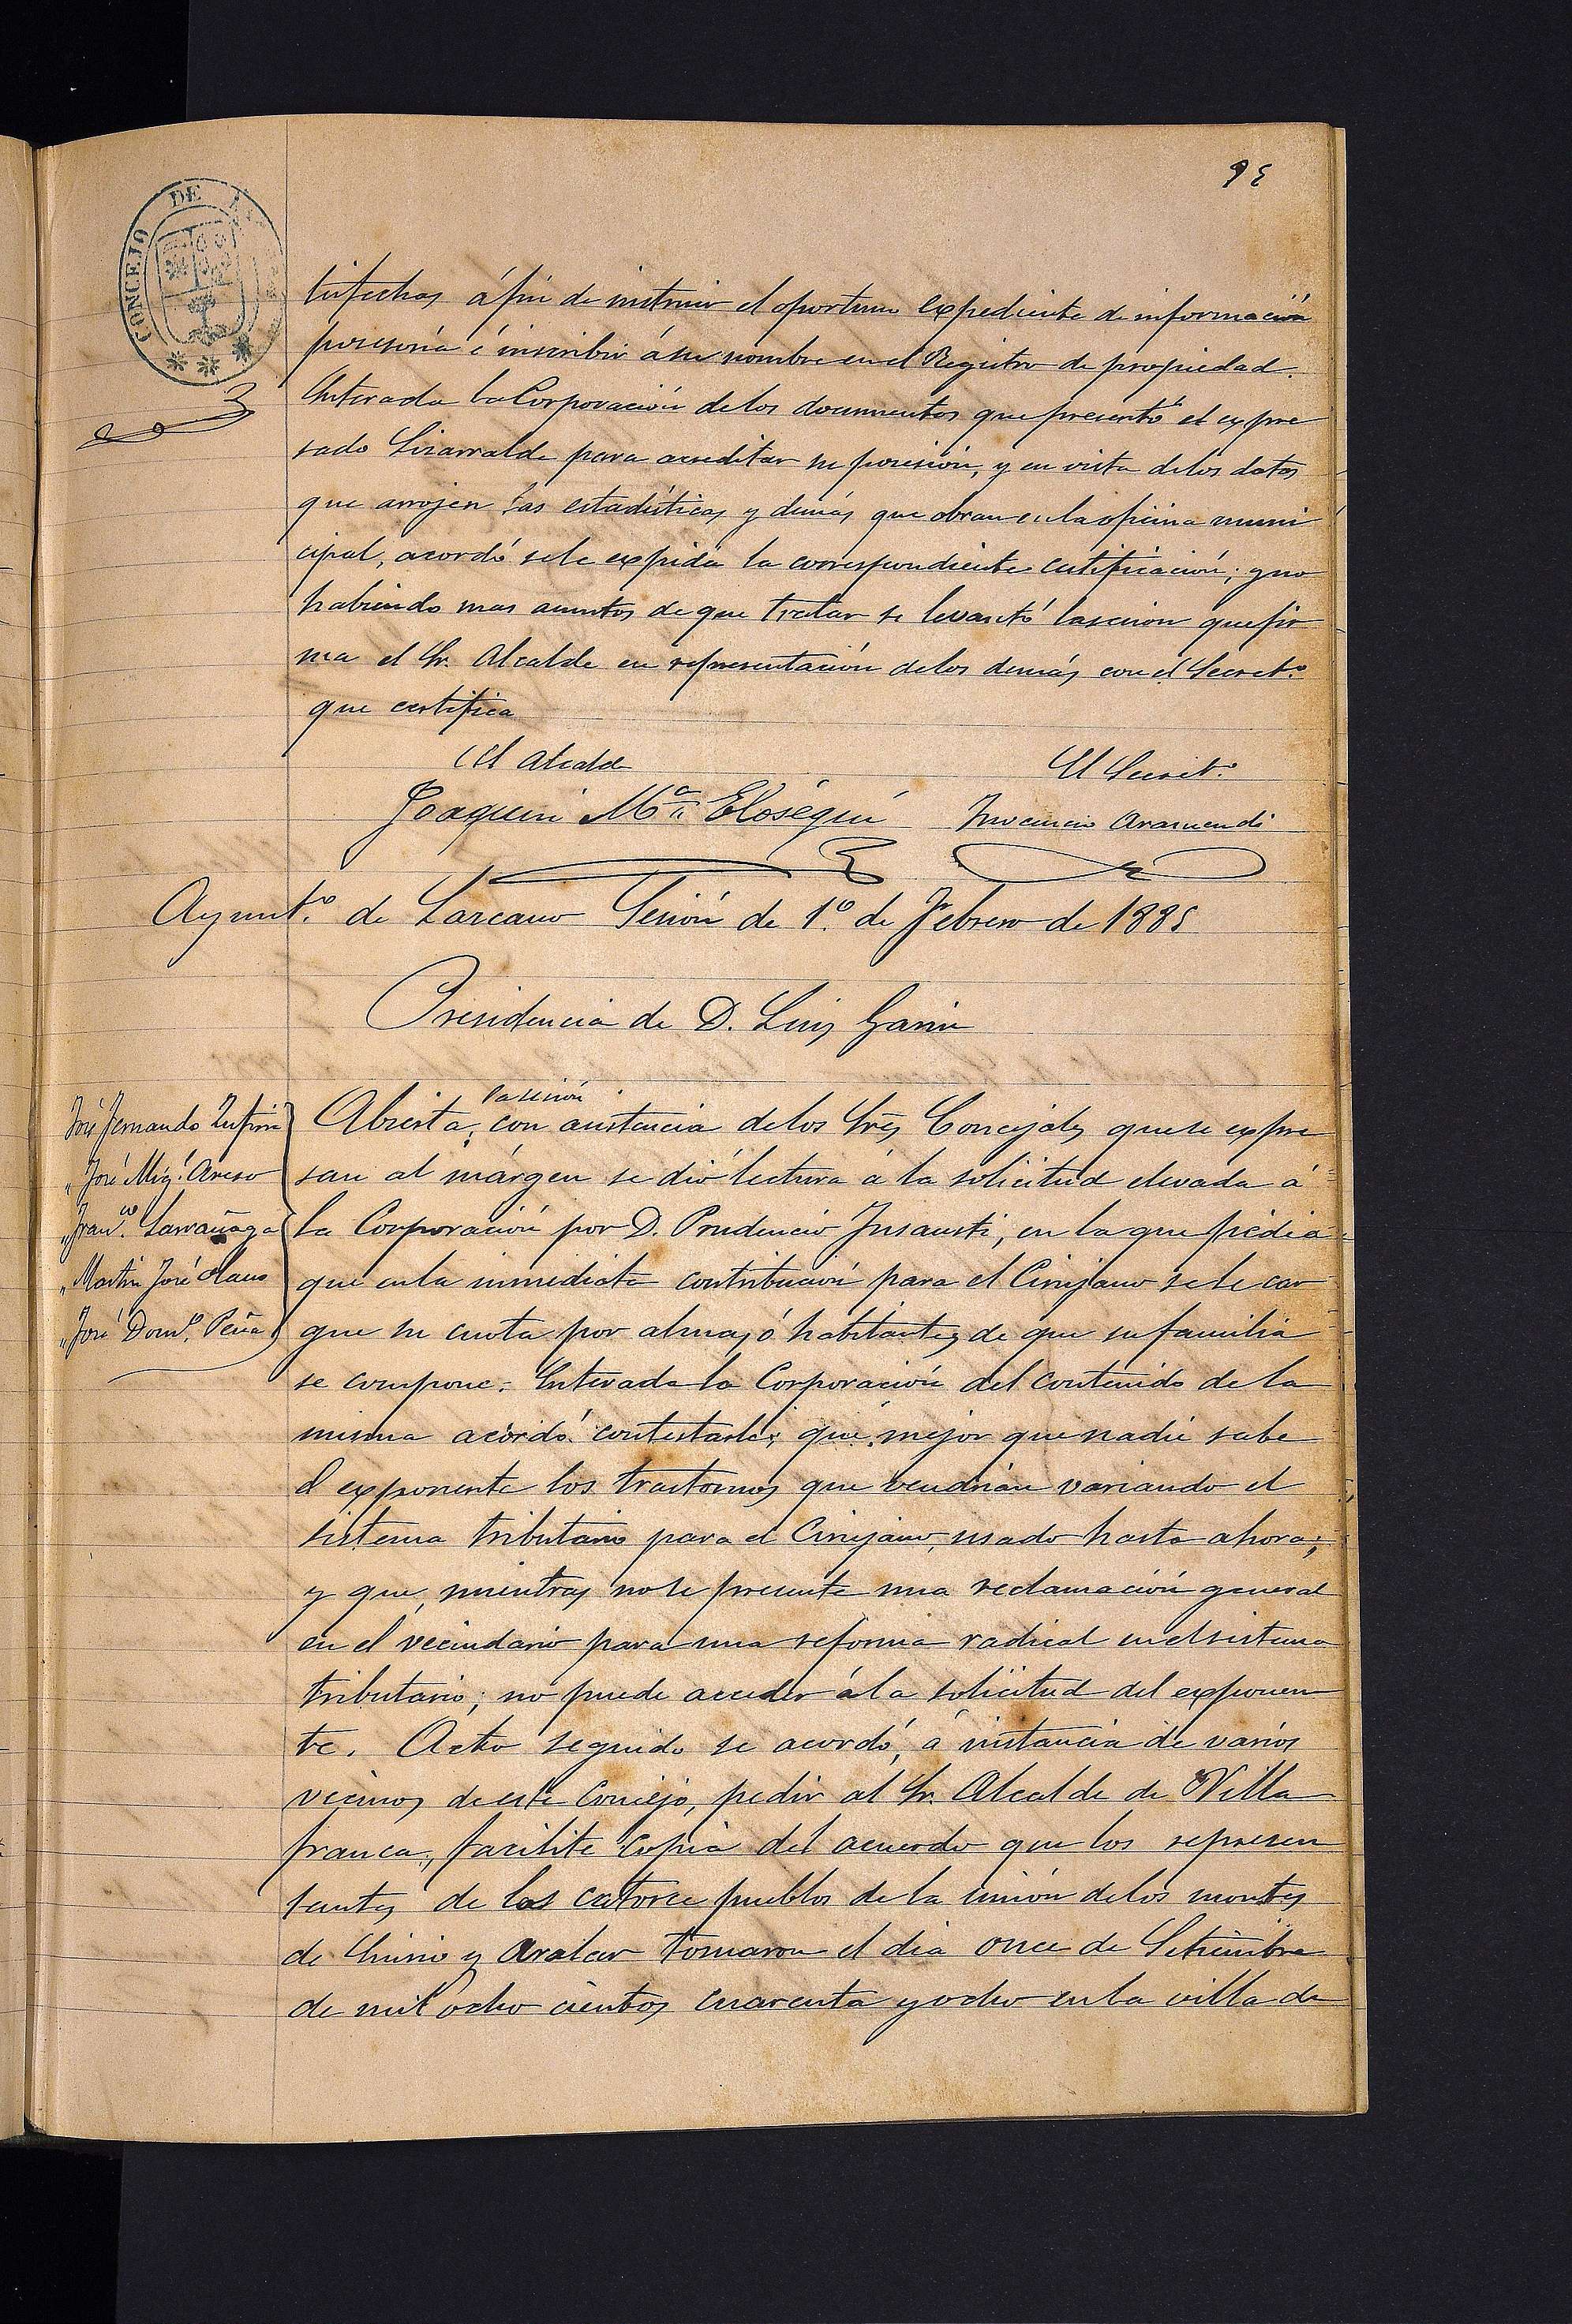 95
CONCEJO DE
tisfechos á fin de instruir el oportuno expediente de información
posesoria é inscribir á su nombre en el Registro de propiedad.
Enterada la Corporación de los documentos que presentó el expre
sado Lizarralde para acreditar su posesión, y en vista de los datos
que arrojen las estadísticas y demás que obran en la oficina muni
cipal, acordó se le expida la correspondiente certificación; y no
habiendo mas asuntos de que tratar se levantó la sesion que fir
ma el Sr. Alcalde en representación de los demás con el Secret.º
que certifica
El Alcalde
El Secret.º
Joaquin M.ª Eloségui
Inocencio Aramendi
Ayunt.º de Lazcano Sesión de 1.º de Febrero de 1885
Presidencia de D. Luis Garin
José Fernando
" José Mig.l Areso
" Fran.co Larrañaga
" Martin José Olano
" José Dom.º Peña
la sesión
Abierta, con asistencia de los Sres Concejales que se expre
san al márgen se dió lectura á la solicitud elevada á
la Corporación por D. Prudencio Insausti, en la que pedia
que en la inmediata contribución para el Cirujano se le car
gue su cuota por almas ó habitantes de que su familia
se compone. Enterada la Corporación del contenido de la
misma acordó contestarle; que mejor que nadie sabe
el exponente los trastornos que vendrian variando el
sistema tributario para el Cirujano, usado hasta ahora;
y que, mientras no se presente una reclamación general
en el vecindario para una reforma radical en el sistema
tributario; no puede acceder á la solicitud del exponen
te. Acto seguido se acordó, á instancia de varios
vecinos de este Concejo, pedir al Sr. Alcalde de Villa
franca, facilite copia del acuerdo que los represen
tantes de los catorce pueblos de la unión de los montes
de Enirio y Aralar tomaron el dia once de Setiembre
de mil ocho cientos cuarenta y ocho en la villa de